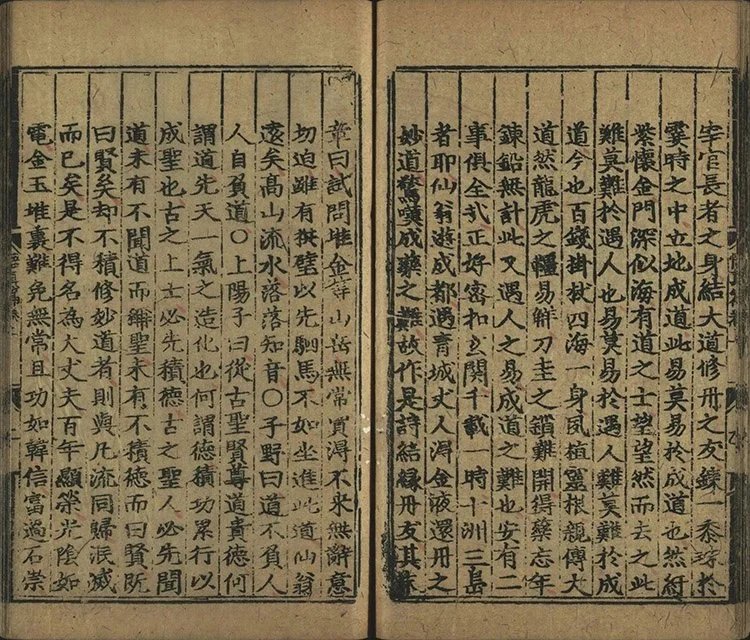 宰官長者之身結大道修丹之友鍊一黍珠於
霎時之中立地成道此易莫易於成道也然紆
紫懷金門深似海有道之士望望然而去之此
難莫難於遇人也易莫易於遇人難莫難於成
道今也百錢掛杖四海一身夙植靈根親傳大
道然龍虎之韁易解刀圭之鎖難開得藥忘年
鍊鉛無計此又遇人之易成道之難也安有二
事俱全哉正好密扣玄關千載一時十洲三島
者耶仙翁遊成都遇青城丈人得金液還丹之
妙道驚嘆成藥之難故作是詩結緣丹友其末
章曰試問堆金等山岳無常買得不來無辭意
切迫雖有拱璧以先駟馬不如坐進此道仙翁
遠矣高山流水落落知音○子野曰道不負人
人自負道○上陽子曰從古聖賢尊道貴德何
謂道先天一氣之造化也何謂德積功累行以
成聖也古之上士必先積德古之聖人必先聞
道未有不聞道而稱聖未有不積德而曰賢既
曰賢矣却不積修妙道者則與凡流同歸泯滅
而已矣是不得名為大丈夫百年顯榮光陰如
電金玉堆裏難免無常且功如韓信富過石崇